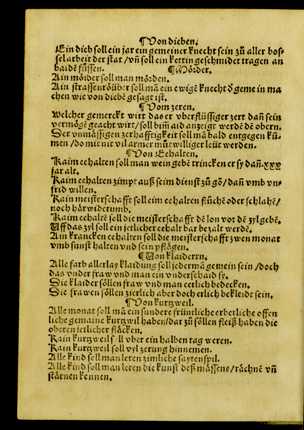 ¶Von dieben.
Ein dieb soll ein jar ein gemeiner knecht sein zů aller bos-
selarbeit der stat / vñ soll ein kettin geschmidet tragen an
baidē füssen. ¶Mörder.
Ain mörder soll man mörden.
Ain strassenröüber soll mã ein ewigē knecht ð gemein ma
chen wie von diebē gesagt ist.
¶Vom zeren.
Welcher gemerckt wirt das er vberflüssiger zert dañ sein
vermögē geacht wirt / soll bim aid anzeigt werdē dē obern.
Der vnmässigen zerhafftigkeit soll mã bald entgegen kũ-
men / do mit nit vil armer můtwilliger leüt werden.
¶Von Eehalten.
Kaim eehalten soll man wein gebē trincken er sy dañ xxx
jar alt.
Kain eehalten zimpt auß seim dienst zů gõ / dañ vmb vn-
frid willen.
Kain meisterschafft soll eim eehalten flůchē oder schlahē /
noch dårwiderumb.
Kaim eehaltē soll die meisterschafft dē lon vor dē zyl gebē.
Vff das zyl soll ein jetlicher eehalt bar bezalt werdē.
Ain krancken eehalten soll die meisterschafft zwen monat
vmb sunst halten vnd sein pflågen.
¶Von klaidern.
Alle farb allerlay klaidung soll jederm̃ã gemein sein / doch
das vnder fraw vnd man ein vnderschaid sy.
Die klaider söllen fraw vnd man eerlich bedecken.
Die frawen söllen zierlich aber doch erlich bekleidt sein.
¶Von kurtzweil.
Alle monat soll mã ein sundere frünliche erberliche offen
liche gemaine kurtzwil haben / dar zů söllen fleiß haben die
oberen jetlicher flåcken.
Kain kurtzweil soll vber ein halben tag weren.
Kain kurtzweil soll vyl zerung hinnemen.
Alle kind soll man leren zimliche saytenspil.
Alle kind soll man leren die kunst deß mässens / råchnē vñ
stårnen kennen.